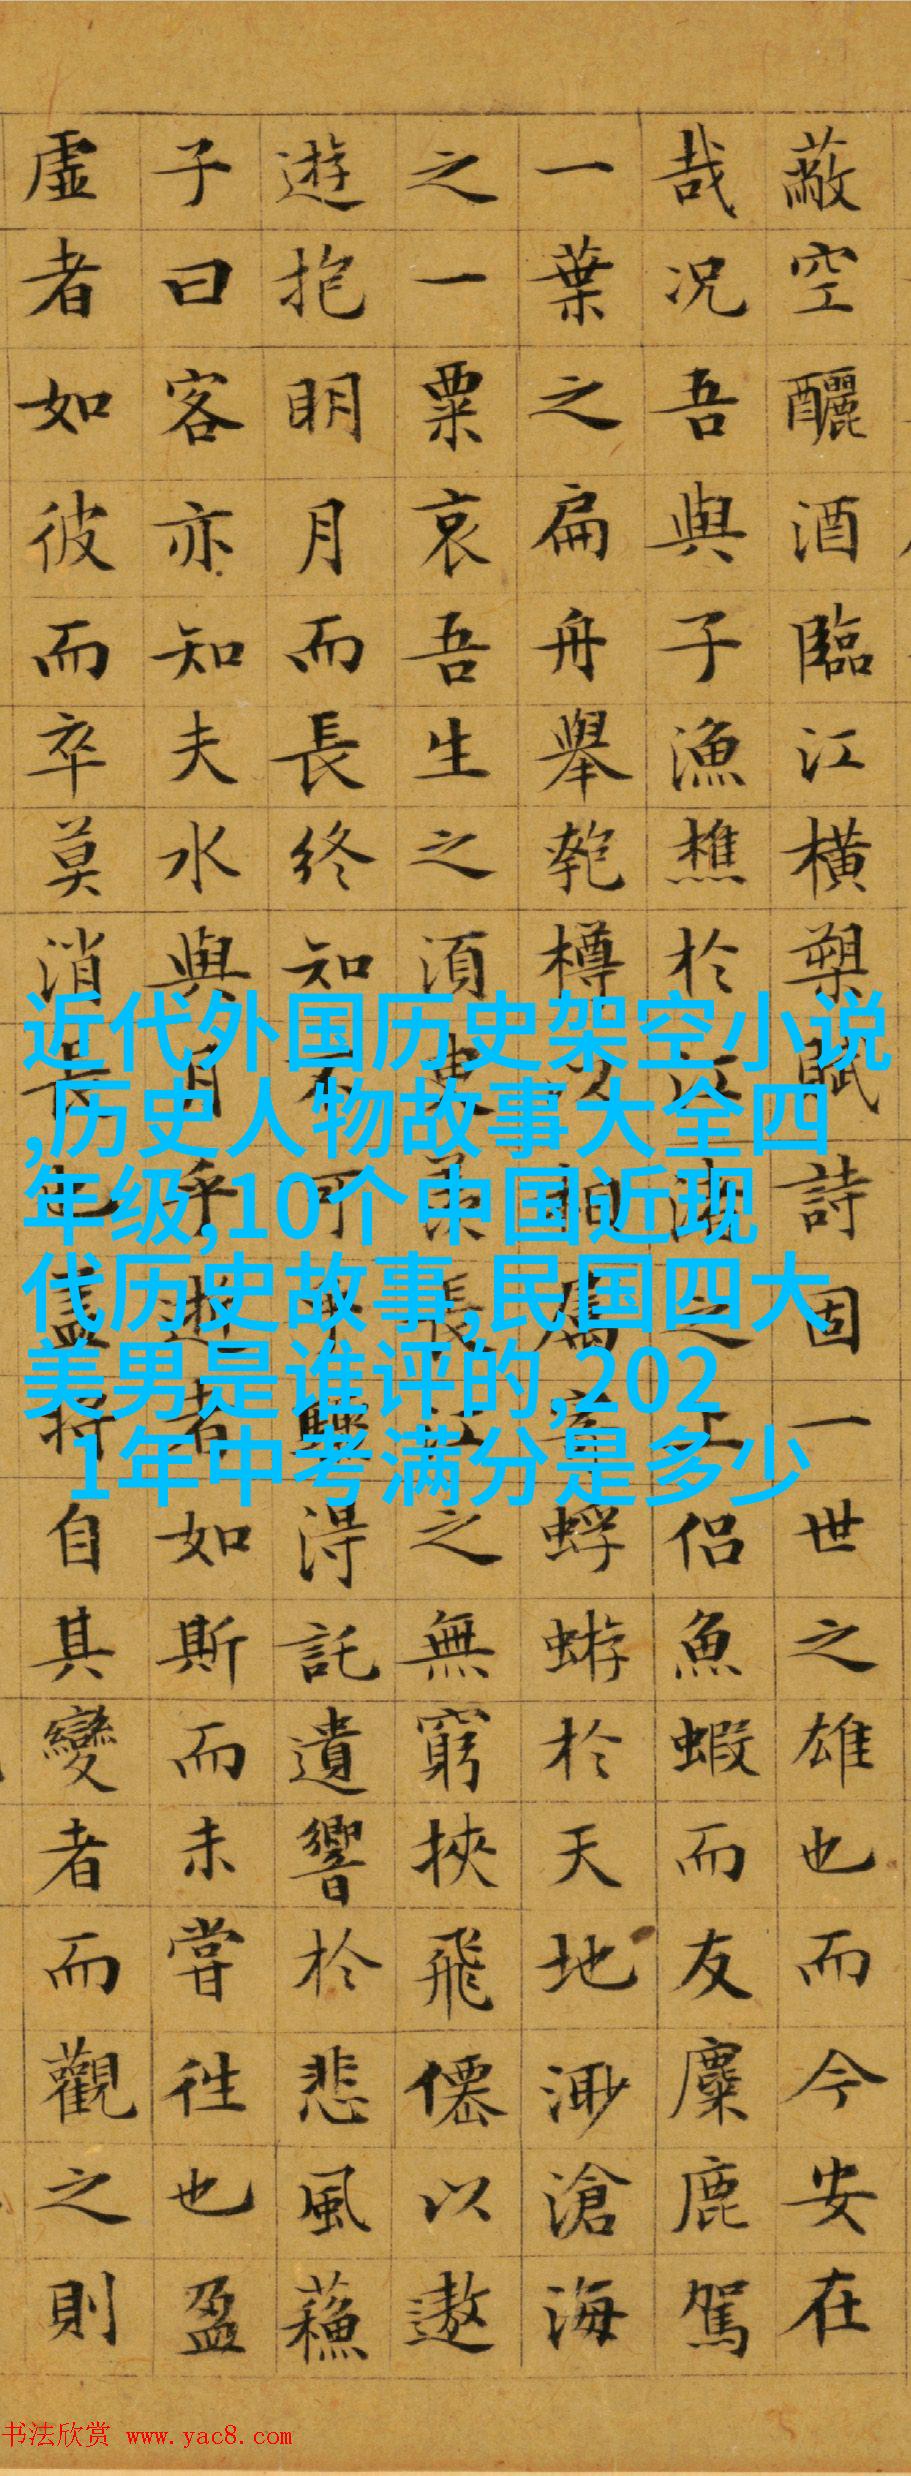 蔽空釃酒臨江橫槊賦詩固一世之雄也而今安在
哉况吾與子漁樵於江渚之上侣魚蝦而友麋鹿駕
一葉之扁舟舉匏樽以相屬寄蜉蝣於天地渺滄海
之一粟哀吾生之須臾羨長江之無窮挾飛僊以遨
遊抱明月而長終知不可乎驟得託遺響於悲風蘓
子曰客亦知夫水與月乎逝者如斯而未嘗往也盈
虛者如彼而卒莫消長也盖将自其變者而觀之則
近代外国历史架空小说
,历史人物故事大全四
年级,10个中国近现
代历史故事,民国四大
美男是谁评的,202
1年中考满分是多少
书法欣赏 www.yac8.com